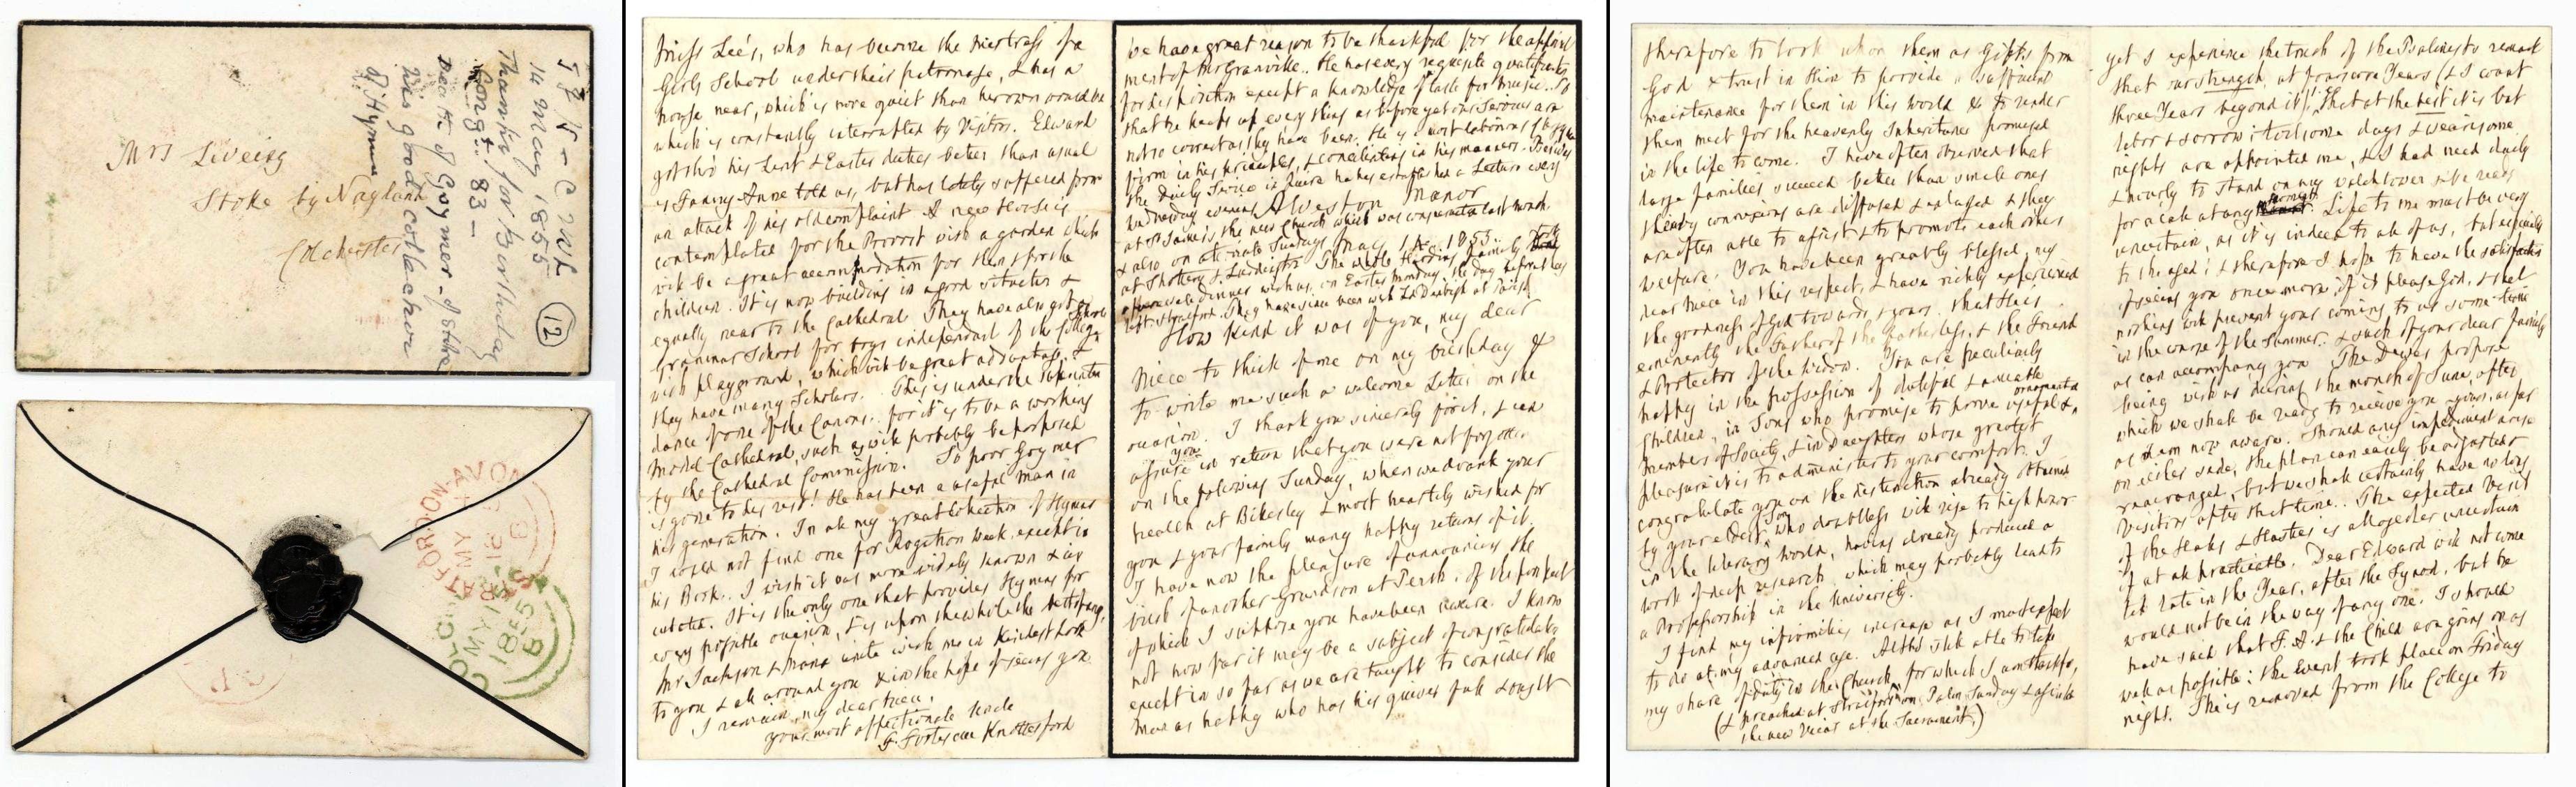 Mrs Liveing
Stoke by Nayland
Colchester
F F K - C W L
14 May 1855
Thanks for Birthday
Congts. 83 -
Death of Goymer of Stoke
His good collection
of Hymns
12
STRATFORD-ON-AVON
MY 15
1855
COLCHESTER
MY 16
1855
B
Miss Lee's, who has become the Mistress of a
Girls School under their patronage, & has a
house near, which is more quiet than her own would be
which is constantly interrupted by Visitors. Edward
got thro' his Lent & Easter duties better than usual
as Fanny Anne told us, but has lately suffered from
an attack of his old complaint. A new House is
contemplated for the Provost with a garden which
will be a great accommodation for them & for the
children. It is now building in a good situation &
equally near to the Cathedral. They have also got a
Grammar School for boys independent of the College
School
with playground, which will be great advantage, &
they have many Scholars. This is under the Superinten
dance of one of the Canons: for it is to be a working
Model Cathedral, such as will probably be proposed
by the Cathedral Commission. So poor Goymer
is gone to his rest! He has been a useful man in
his generation. In all my great Collection of Hymns
I could not find one for Rogation Week, except in
his Book. I wish it was more widely known & cir
culated. It is the only one that provides Hymns for
every possible occasion, & is upon the whole the best
Mr Jackson & Maria unite with me in kindest Love
to you & all around you & in the hope of seeing you
I remain, my dear Niece,
your most affectionate Uncle
F. Fortescue Knottesford
We have great reason to be thankful for the appoint
ment of Mr Granville. He has every requisite qualification
for his situation except a knowledge & taste for Music. So
that he keeps up every thing as before, yet our Services are
not so correct as they have been. He is a most laborious Clergyman
firm in his principles, & conciliating in his manners. Besides
the Daily Service in Choir he has established a Lecture every
Wednesday evening
Alveston Manor
at St James's, the new Church which was consecrated last month
& also on alternate Sundays
May 14. 1855
at Shottery & Luddington. The whole Harding family
dined with us on Easter Monday, the day before they
left Stratford. They have since been with Ld Denbigh at
How kind it was of you, my dear
Niece to think of me on my birthday &
to write me such a welcome Letter on the
occasion. I thank you sincerely for it, & can
assure you in return that you were not forgotten
on the following Sunday, when we drank your
health at Bikesley & most heartily wished for
you & your family many happy returns of it.
I have now the pleasure of announcing the
birth of another Grandson at Perth: of the prospect
of which I suppose you have been aware. I know
not how far it may be a subject of congratulation
except in so far as we are taught to consider the
Man as happy who has his quiver full & ought
therefore to look upon them as Gifts from
God & trust in Him to provide a sufficient
maintenance for them in this world & to render
them meet for the heavenly Inheritance promised
in the life to come. I have often observed that
large families succeed better than single ones
their connexions are diffused & enlarged & they
are often able to assist & to promote each others
welfare. You have been greatly blessed, my
dear Niece in this respect, & have richly experienced
the goodness of God towards & yours that He is
eminently the Father of the fatherless, & the Friend
& Protector of the Widow. You are peculiarly
happy in the possession of dutiful & amiable
Children, in Sons who promise to prove useful & ornamental
members of Society, & in Daughters whose greatest
pleasure it is to administer to your comfort. I
congratulate you on the distinction already obtained
by your eldest Son, who doubtless will rise to high honor
in the literary world, having already produced a
work of deep research, which may probably lead to
a Professorship in the University.
I find my infirmities increase as I must expect
to do at my advanced age. Altho' still able to take
my share of duty in the Church, for which I am thankful,
(& preached at Stratford on Palm Sunday & assisted
the new Vicar at the Sacrament,)
yet I experience the truth of the Psalmist's remark
that our strength at fourscore Years (& I count
three Years beyond it!) That at the best it is but
labor & sorrow: toilsome days & wearisome
nights are appointed me, & I had need daily
& hourly to stand on my watchtower & be ready
for a call at any moment. Life to me must be very
uncertain, as it is indeed to all of us, but especially
to the aged: & therefore I hope to have the satisfaction
of seeing you once more, if it please God, & that
nothing will prevent your coming to us some time
in the course of the Summer, & such of your dear family
as can accompany you. The Dewes propose
being with us during the month of June, after
which we shall be ready to receive you & yours, as far
as I am now aware. Should any impediment arise
on either side, the plan can easily be adjusted or
rearranged, but we shall certainly have no long
Visitors after that time. The expected Visit
of the Hales & Hastics is altogether uncertain
if at all practicable. Dear Edward will not come
till late in the Year, after the Synod, but he
would not be in the way of any one. I should
have said that F. A. & the Child are going on as
well as possible: the event took place on Friday
night. She is removed from the College to